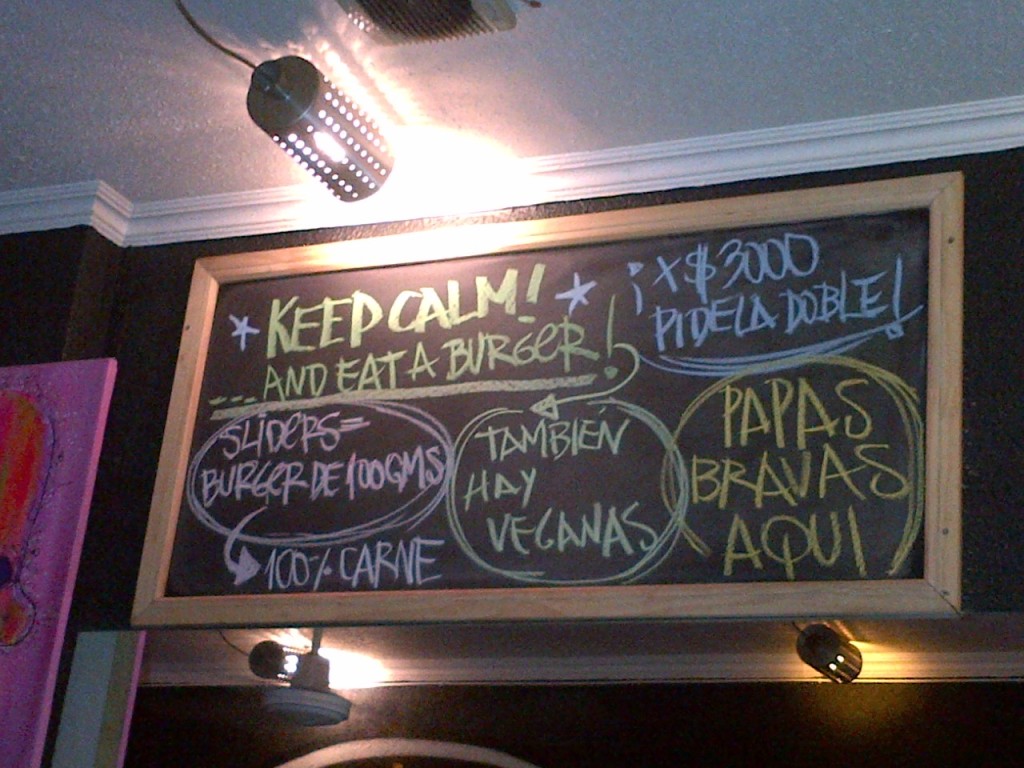 KEEP CALM!
AND EAT A BURGER!
¡X $3000
PIDE LA DOBLE!
SLIDERS=
BURGER DE 100GMS
100% CARNE
TAMBIÉN
HAY
VEGANAS
PAPAS
BRAVAS
AQUI